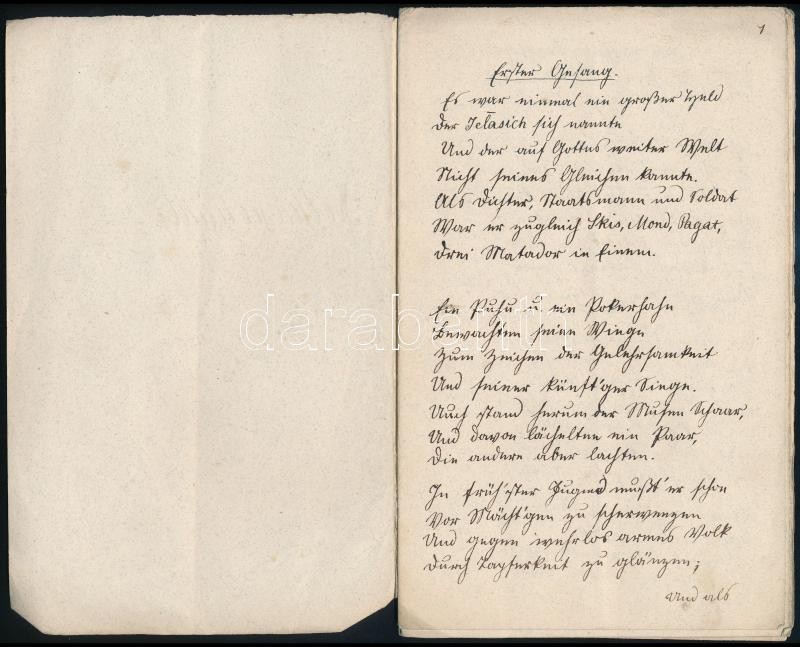 1
Erster Gesang.
Es war einmal ein großer Held
Der Jellasich sich nannte
Und der auf Gottes weiter Welt
Nicht seines Gleichen kannte.
Als Dichter, Staatsmann und Soldat
War er zugleich Skis, Mond, Pagat,
Drei Matador in Einem.
Ein Puhu u. ein Pokerhahn
Bewachten seine Wiege
Zum Zeichen der Gelehrsamkeit
Und seiner künft'ger Siege.
Auch stand herum der Musen Schaar,
Und davon lächelten ein Paar,
Die andere aber lachten.
In früh'ster Jugend mußt' er schon
Vor Mächt'gen zu scherwenzen
Und gegen wehrlos armes Volk
Durch Tapferkeit zu glänzen;
Und als
darabanth